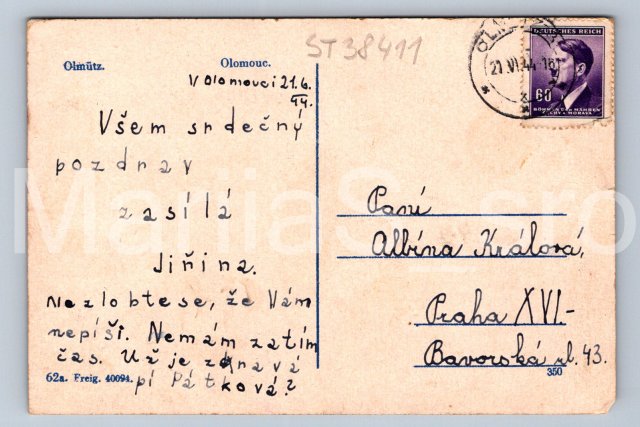 ST38411
Olmütz. Olomouc.
V Olomouci 21.6.
44.
Všem srdečný
pozdrav
zasílá
Jiřina.
Nezlobte se, že Vám
nepíši. Nemám zatím
čas. Už je zdravá
pí Pátková?
62a. Freig. 40094.
21.VI.44-16
DEUTSCHES REICH
60
BÖHMEN u. MÄHREN
ČECHY a MORAVA
Paní
Albína Králová,
Praha XVI-
Bavorská ul. 43.
350